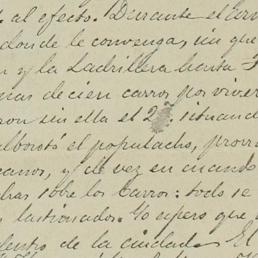 al efecto. Durante el
donde le convenga, sin que
y la Ladrillera hasta
decien carros por viver
ron sin ella el 2º. situand
alborotó el populacho, prorr
canos, y de vez en cuando
bras sobre los carros: todo se
lastionados. Yo espero que
dentro de la ciudad. El